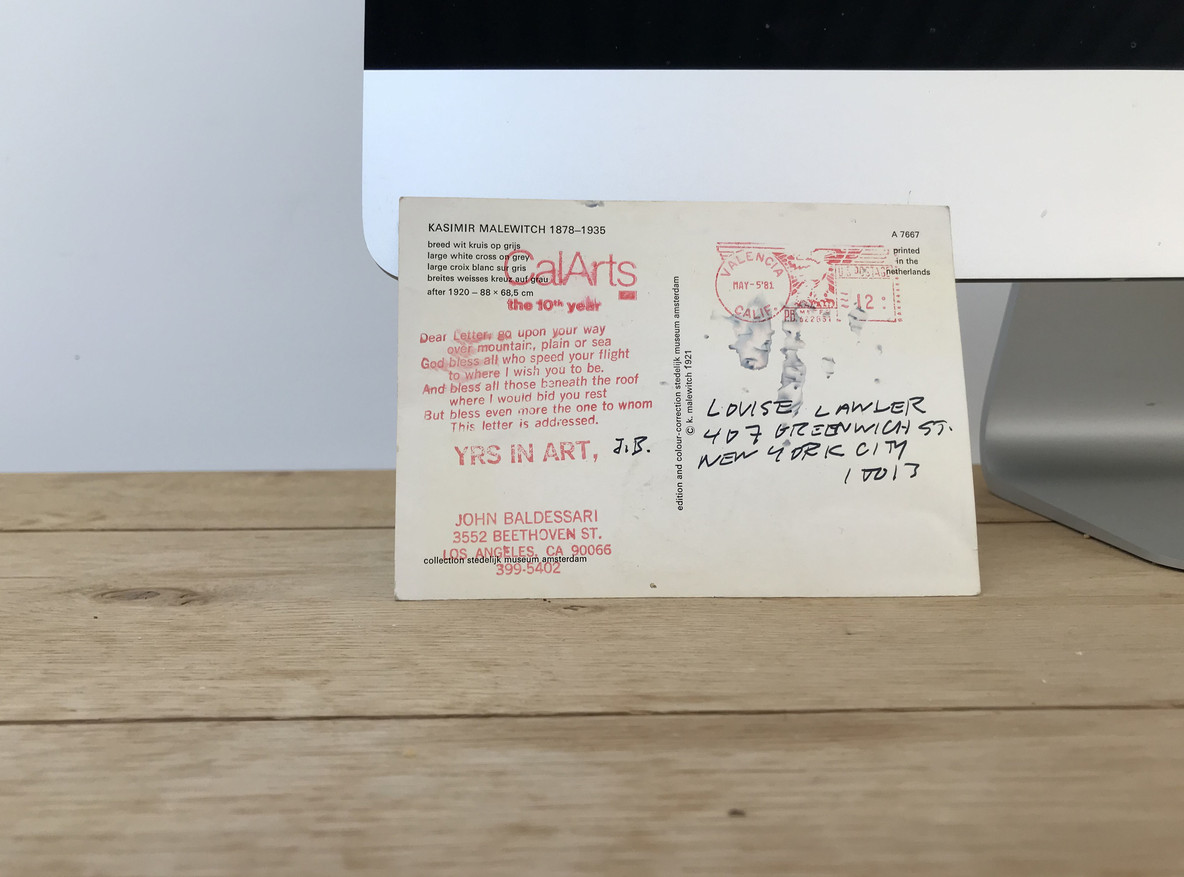 KASIMIR MALEWITCH 1878–1935
breed wit kruis op grijs
large white cross on grey
large croix blanc sur gris
breites weisses kreuz auf grau
after 1920 – 88 × 68,5 cm
CalArts
the 10th year
Dear Letter, go upon your way
over mountain, plain or sea
God bless all who speed your flight
to where I wish you to be.
And bless all those beneath the roof
where I would bid you rest
But bless even more the one to whom
This letter is addressed.
YRS IN ART, J.B.
JOHN BALDESSARI
3552 BEETHOVEN ST.
LOS ANGELES, CA 90066
399-5402
collection stedelijk museum amsterdam
edition and colour-correction stedelijk museum amsterdam
© k. malewitch 1921
A 7667
printed
in the
netherlands
VALENCIA
MAY-5'81
CALIF.
U.S. POSTAGE
12
PB
LOUISE LAWLER
407 GREENWICH ST.
NEW YORK CITY
10013